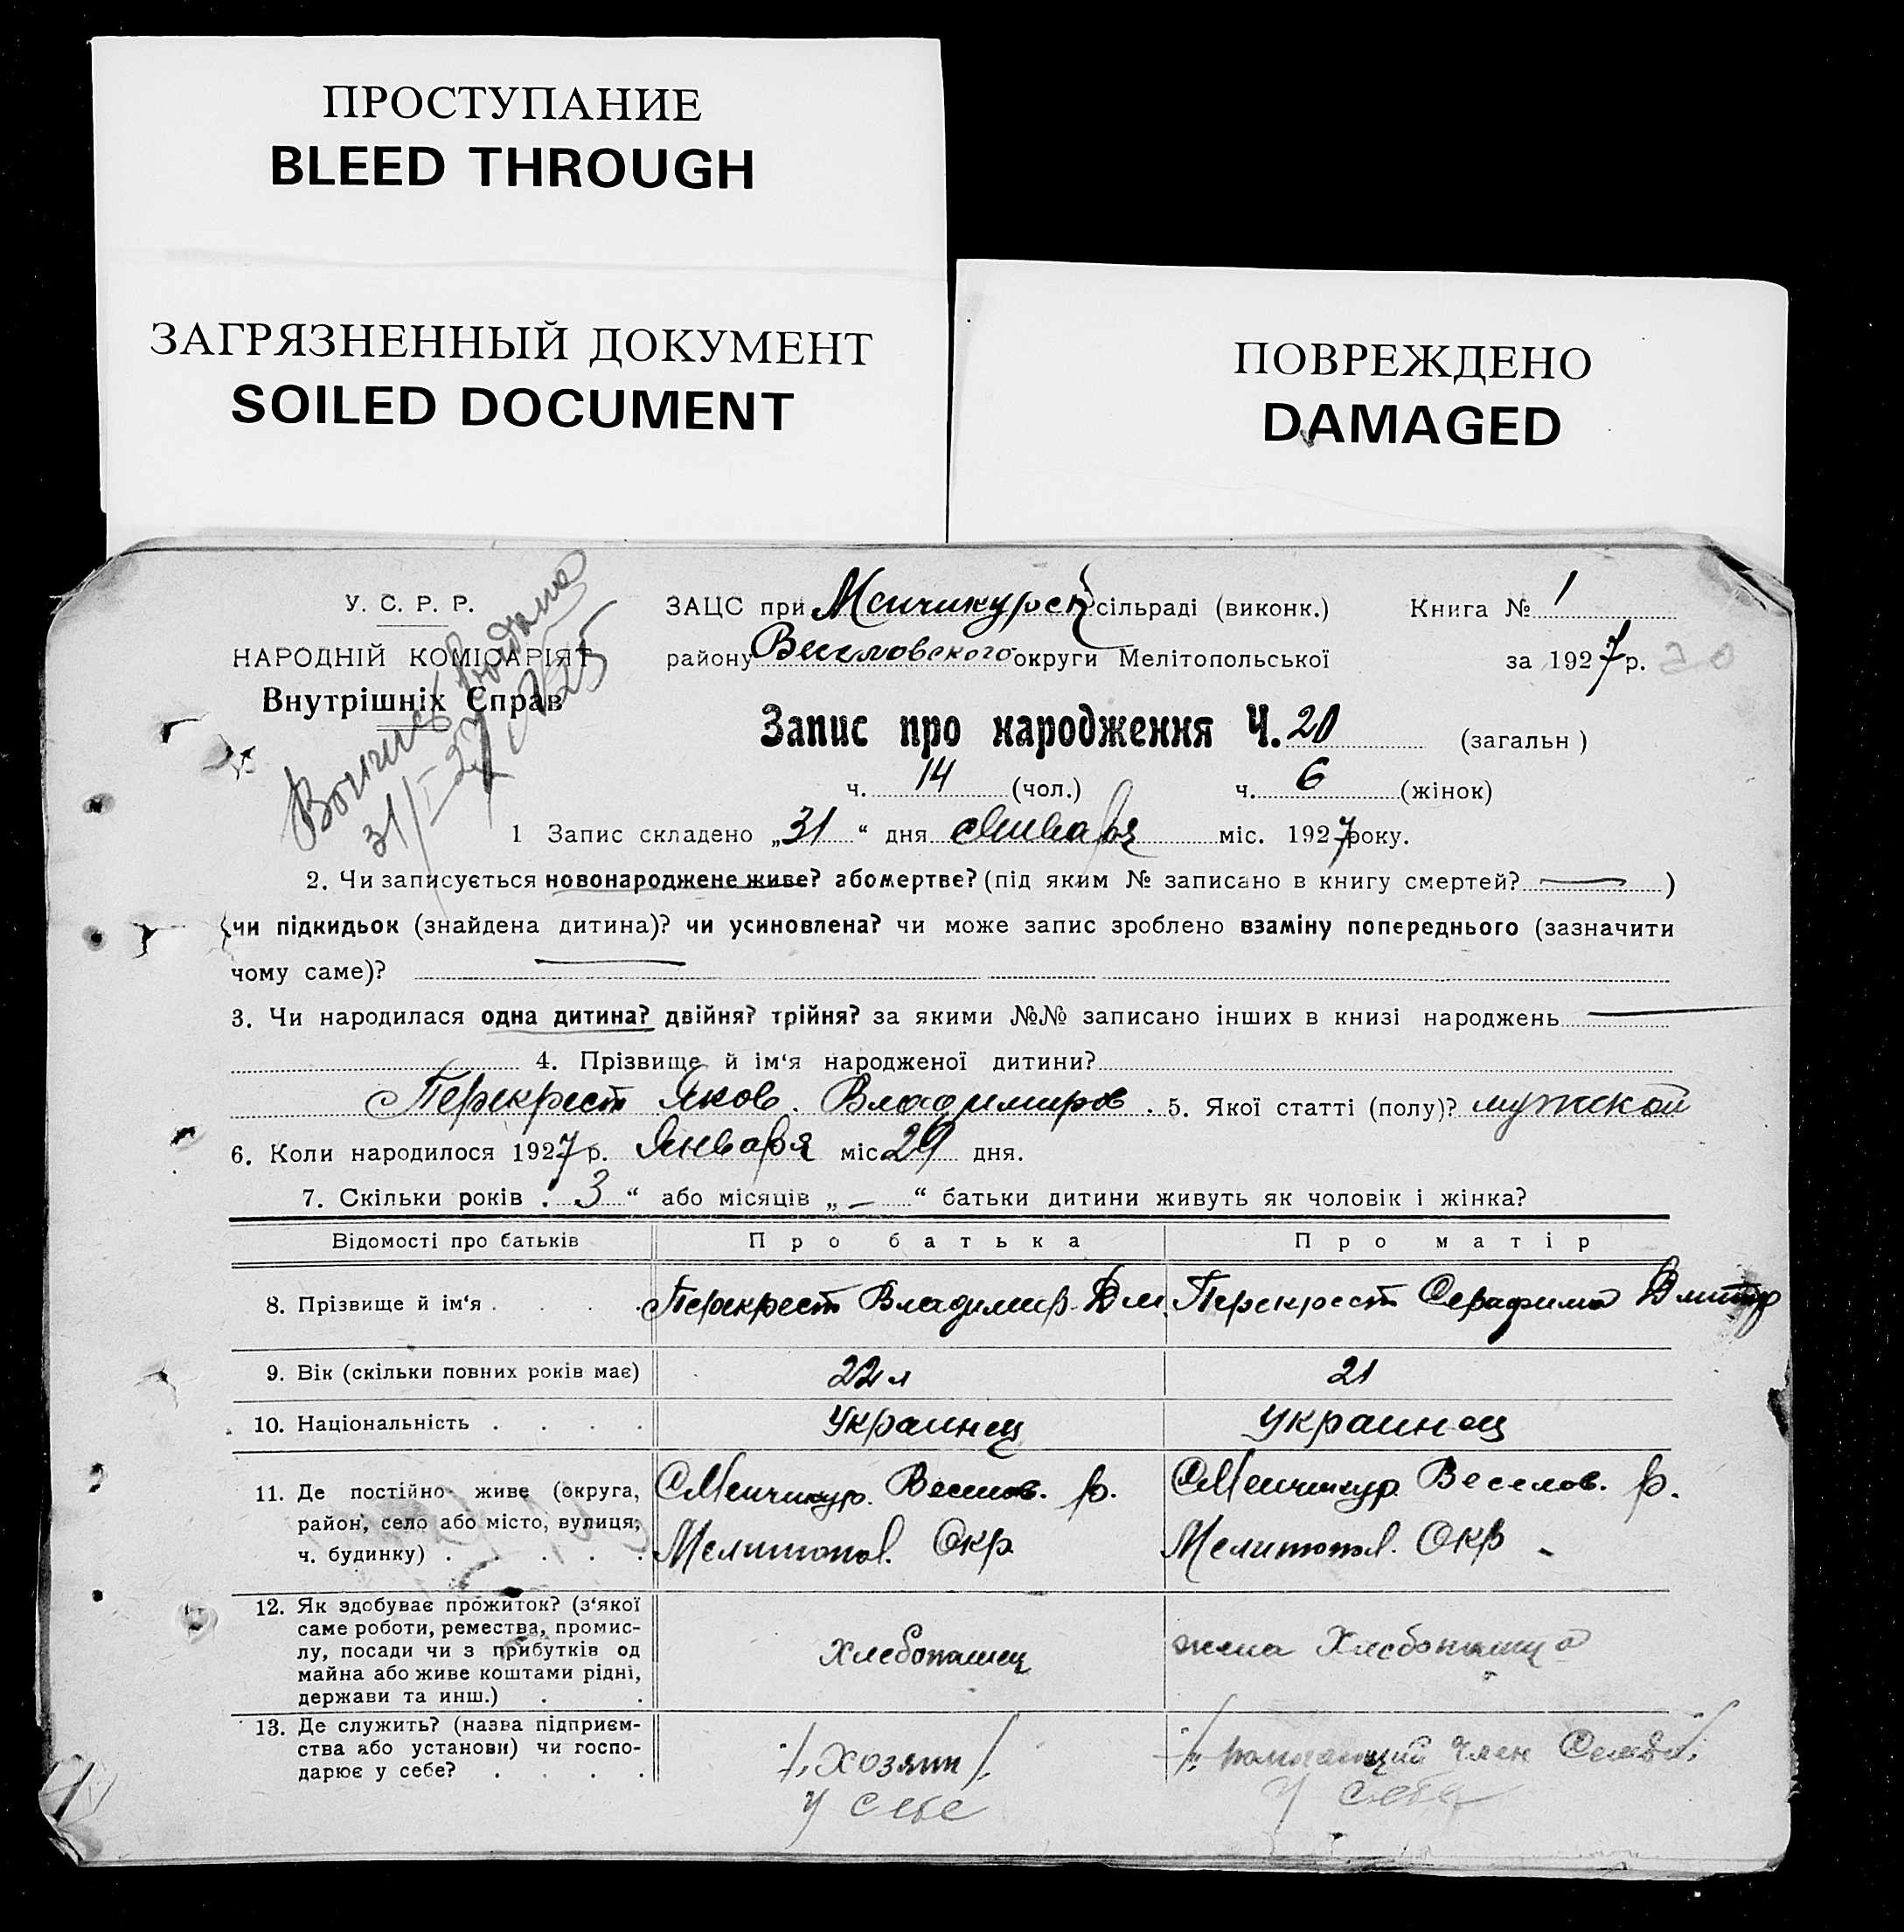 ПРОСТУПАНИЕ
BLEED THROUGH
ЗАГРЯЗНЕННЫЙ ДОКУМЕНТ
SOILED DOCUMENT
ПОВРЕЖДЕНО
DAMAGED
У. С. Р. Р.
НАРОДНІЙ КОМІСАРІЯТ
Внутрішніх Справ
выдана
31/I-27
ЗАЦС при Менчикурск сільраді (виконк.) Книга № 1
району Веселовского округи Мелітопольської за 1927 р. 20
Запис про народження Ч. 20 (загальн )
ч. 14 (чол.) ч. 6 (жінок)
1 Запис складено „31“ дня Января міс. 1927 року.
2. Чи записується новонароджене живе? або мертве? (під яким № записано в книгу смертей? — )
чи підкидьок (знайдена дитина)? чи усиновлена? чи може запис зроблено взаміну попереднього (зазначити
чому саме)? —
3. Чи народилася одна дитина? двійня? трійня? за якими №№ записано інших в книзі народжень —
4. Прізвище й ім‘я народженої дитини?
Перекрест Яков. Владимиров. 5. Якої статті (полу)? мужской
6. Коли народилося 1927 р. Января міс 29 дня.
7. Скільки років „ 3 “ або місяців „ — “ батьки дитини живуть як чоловік і жінка?
Відомості про батьків Про батька Про матір
8. Прізвище й ім‘я . . . . Перекрест Владимир Дм. Перекрест Серафима Дмитр
9. Вік (скільки повних років має) 22 л 21
10. Національність . . . . Украинец Украинец
11. Де постійно живе (округа, С Менчикур. Веселов. р. С Менчикур. Веселов. р.
район, село або місто, вулиця,
ч. будинку) . . . . . Мелитопол. Окр Мелитопол. Окр -
12. Як здобуває прожиток? (з‘якої
саме роботи, ремества, промис-
лу, посади чи з прибутків од Хлебопашец жена Хлебопашца
майна або живе коштами рідні,
держави та инш.) . .
13. Де служить? (назва підприєм-
ства або установи) чи госпо- Хозяин помогающий член Семьи
дарює у себе? . . . . у себе у себе